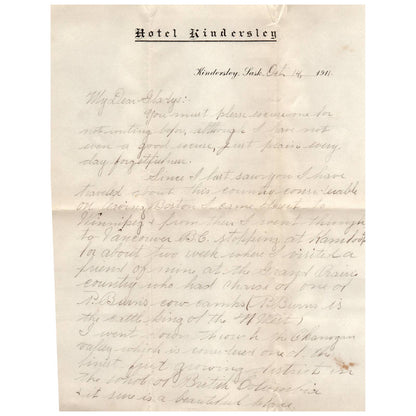 Hotel Kindersley
Kindersley, Sask. Oct. 14, 191
My Dear Gladys:
You must please excuse me for
not writing before, although I have not
even a good excuse, just plain every
day forgetfulness.
Since I last saw you I have
traveled about this country considerable
on leaving Boston I came direct to
Winnipeg & from there I went through
to Vancouver B.C. stopping at Kamloops
for about two weeks where I visited a
friend of mine, at the Grand Prairie
country who had charge of one of
P. Burns cow camps (P. Burns is
the cattle king of the N West)
I went down through the Okanagan
valley which is considered one of the
finest fruit growing districts in
the whole of British Columbia
& it sure is a beautiful place